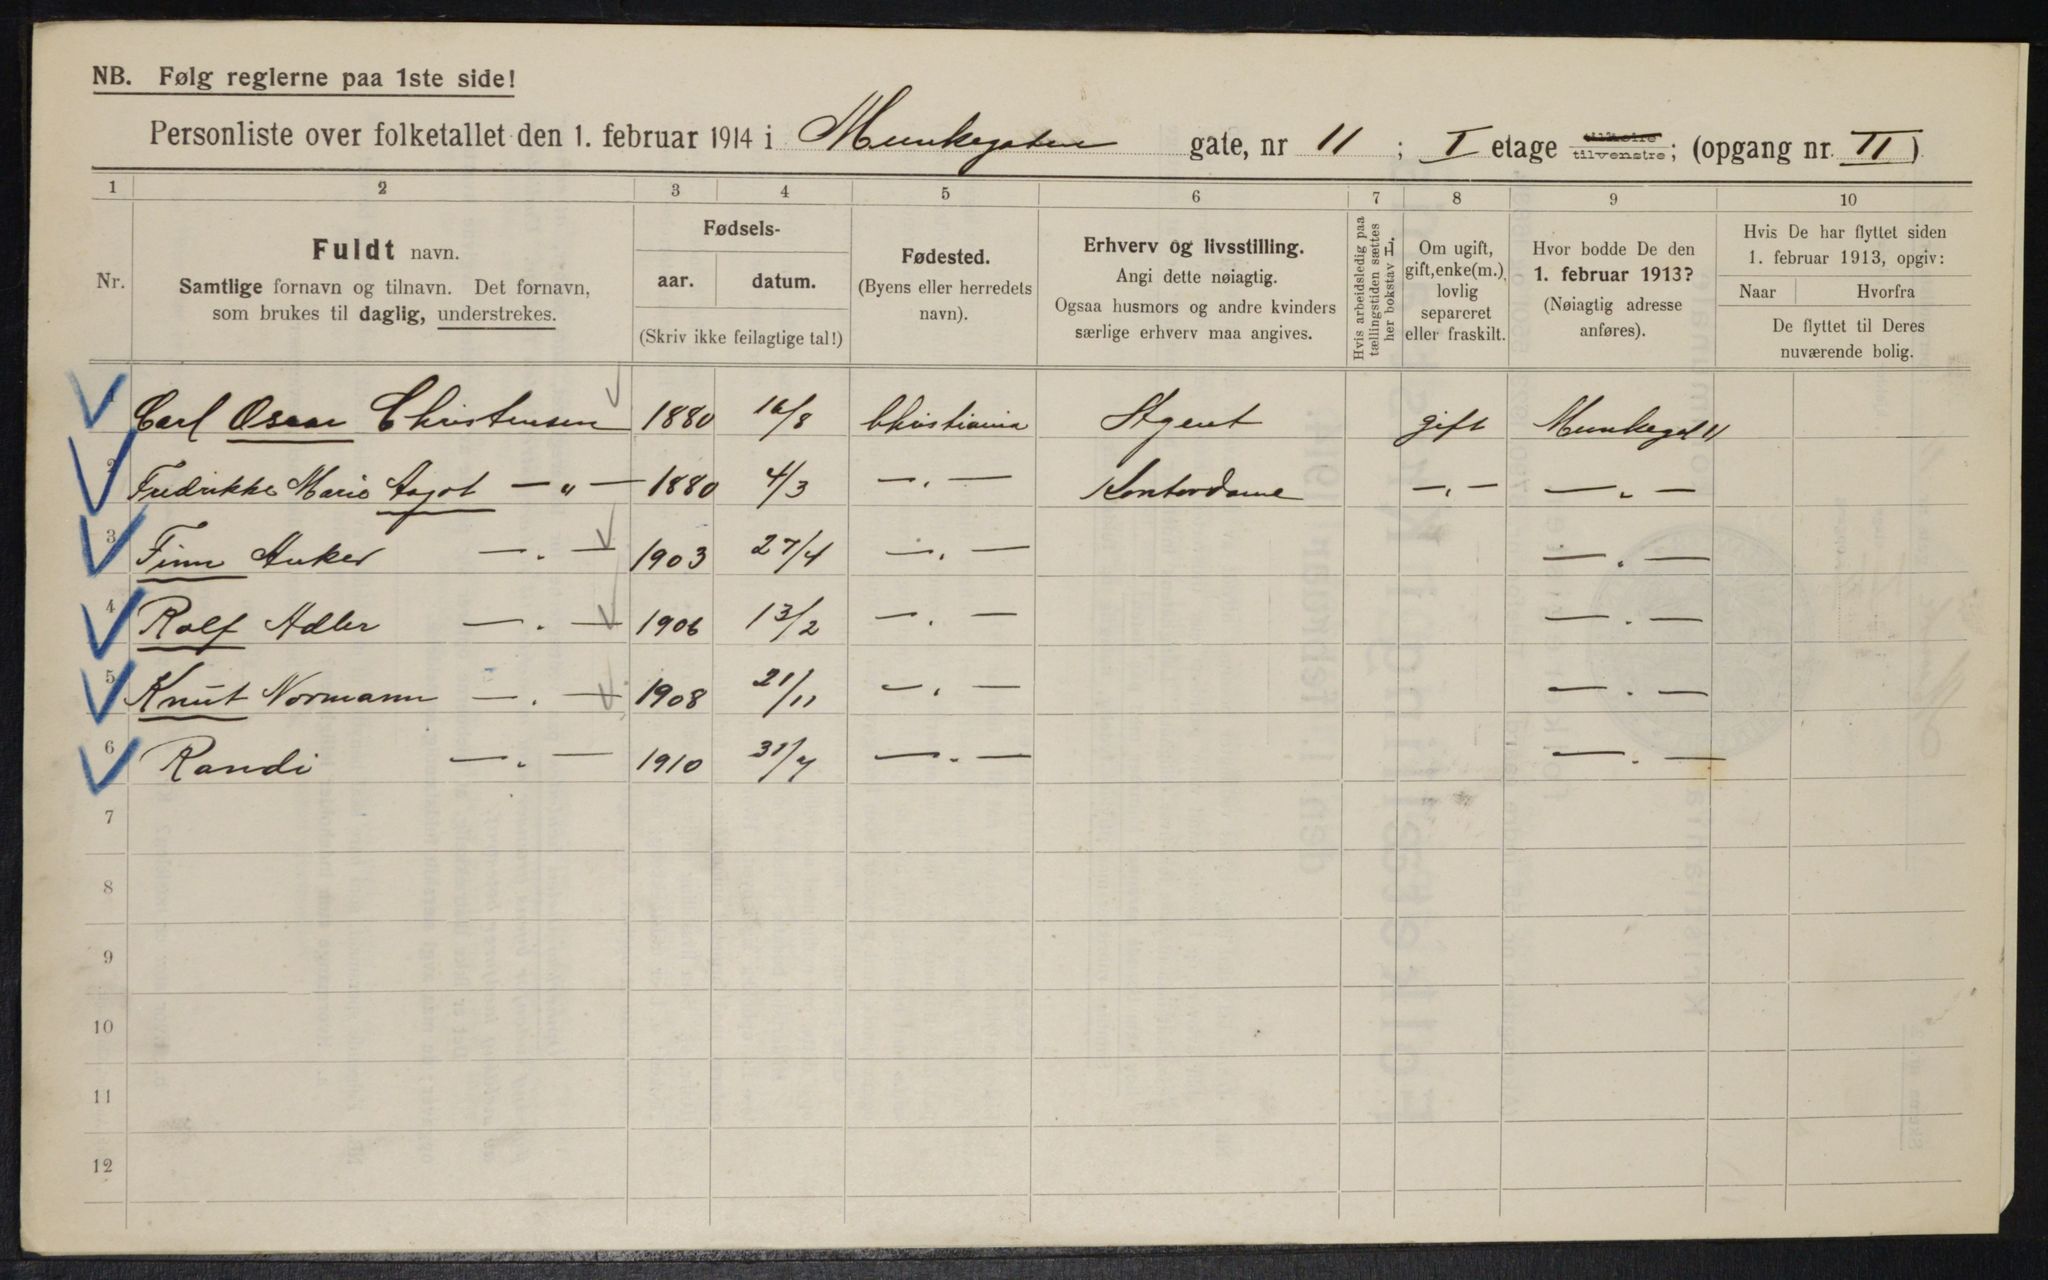 NB. Følg reglerne paa 1ste side!
Personliste over folketallet den 1. februar 1914 i Munkegaten gate, nr 11 ; I etage tilhøire tilvenstre; (opgang nr. II)
1 2 3 4 5 6 7 8 9 10
Nr.
Fuldt navn.
Samtlige fornavn og tilnavn. Det fornavn,
som brukes til daglig, understrekes.
Fødsels-
aar. datum.
(Skriv ikke feilagtige tal!)
Fødested.
(Byens eller herredets
navn).
Erhverv og livsstilling.
Angi dette nøiagtig.
Ogsaa husmors og andre kvinders
særlige erhverv maa angives.
Hvis arbeidsledig paa
tællingstiden sættes
her bokstav L.
Om ugift,
gift, enke(m.),
lovlig
separeret
eller fraskilt.
Hvor bodde De den
1. februar 1913?
(Nøiagtig adresse
anføres).
Hvis De har flyttet siden
1. februar 1913, opgiv:
Naar Hvorfra
De flyttet til Deres
nuværende bolig.
1 Carl Oscar Christensen 1880 16/8 Christiania Agent gift Munkegt 11
2 Fredrikke Marie Aagot — „ — 1880 4/3 — „ — Kontordame — „ — — „ —
3 Finn Anker — „ — 1903 27/4 — „ — — „ —
4 Rolf Adler — „ — 1906 13/2 — „ — — „ —
5 Knut Normann — „ — 1908 21/11 — „ — — „ —
6 Randi — „ — 1910 31/7 — „ — — „ —
7
8
9
10
11
12